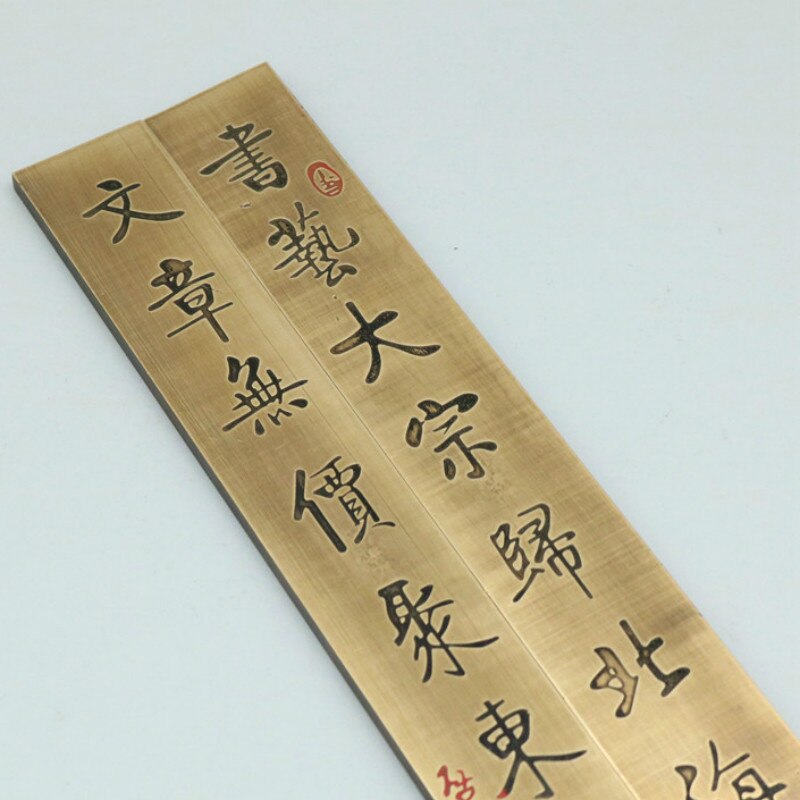 書藝大宗歸北海
文章無價聚東